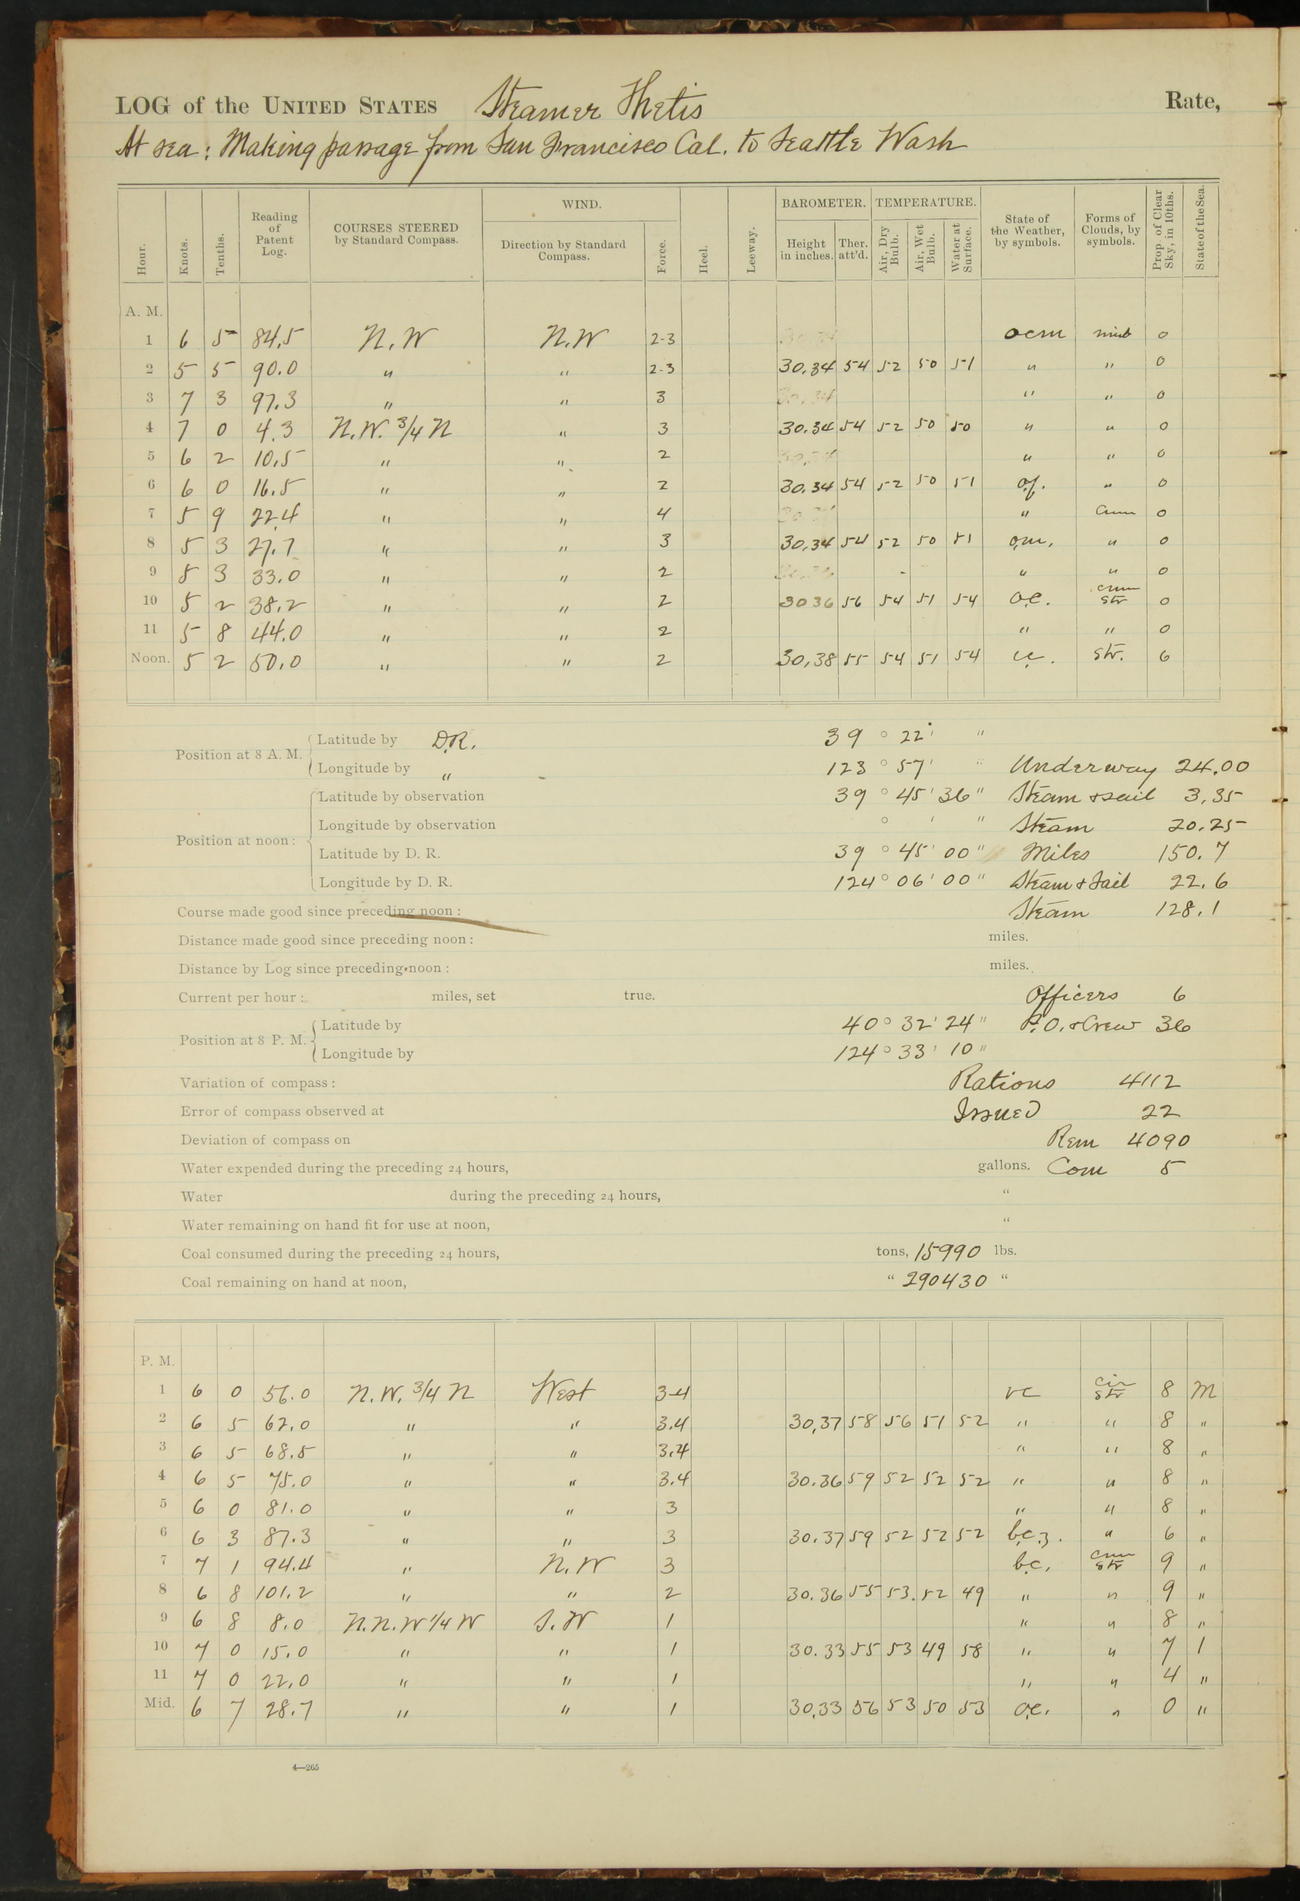 LOG of the UNITED STATES Steamer Thetis Rate,
At sea: Making passage from San Francisco Cal. to Seattle Wash
Hour. Knots. Tenths. Reading of Patent Log. COURSES STEERED by Standard Compass. WIND. Direction by Standard Compass. Force. Heel. Leeway. BAROMETER. Height in inches. Ther. att'd. TEMPERATURE. Air, Dry Bulb. Air, Wet Bulb. Water at Surface. State of the Weather, by symbols. Forms of Clouds, by symbols. Prop. of Clear Sky, in 10ths. State of the Sea.
A. M.
1 6 5 84.5 N.W N.W 2-3 30.34 ocm nimb 0
2 5 5 90.0 " " 2-3 30.34 54 52 50 51 " " 0
3 7 3 97.3 " " 3 30.34 " " 0
4 7 0 4.3 N.W. 3/4 N " 3 30.34 54 52 50 50 " " 0
5 6 2 10.5 " " 2 30.34 " " 0
6 6 0 16.5 " " 2 30.34 54 52 50 51 o.f. " 0
7 5 9 22.4 " " 4 " Cum 0
8 5 3 27.7 " " 3 30.34 54 52 50 51 o.m. " 0
9 5 3 33.0 " " 2 " " 0
10 5 2 38.2 " " 2 30 36 56 54 51 54 o.c. cum str 0
11 5 8 44.0 " " 2 " " 0
Noon. 5 2 50.0 " " 2 30.38 55 54 51 54 str. 6
Position at 8 A. M. Latitude by D.R. 39 ° 22 ' "
Longitude by " 123 ° 57 ' " Underway 24.00
Position at noon: Latitude by observation 39 ° 45 ' 36 " Steam & sail 3.35
Longitude by observation ° ' " Steam 20.25
Latitude by D. R. 39 ° 45 ' 00 " Miles 150.7
Longitude by D. R. 124 ° 06 ' 00 " Steam & Sail 22.6
Course made good since preceding noon: Steam 128.1
Distance made good since preceding noon: miles.
Distance by Log since preceding noon: miles.
Current per hour: miles, set true. Officers 6
Position at 8 P. M. Latitude by 40 ° 32 ' 24 " P.O. & Crew 36
Longitude by 124 ° 33 ' 10 "
Variation of compass: Rations 4112
Error of compass observed at Issued 22
Deviation of compass on Rem 4090
Water expended during the preceding 24 hours, gallons. Com 5
Water during the preceding 24 hours, "
Water remaining on hand fit for use at noon, "
Coal consumed during the preceding 24 hours, tons, 15990 lbs.
Coal remaining on hand at noon, " 290430 "
P. M.
1 6 0 56.0 N.W. 3/4 N West 3-4 cir str 8 M
2 6 5 62.0 " " 3.4 30.37 58 56 51 52 " " 8 "
3 6 5 68.5 " " 3.4 " " 8 "
4 6 5 75.0 " " 3.4 30.36 59 52 52 52 " " 8 "
5 6 0 81.0 " " 3 " " 8 "
6 6 3 87.3 " " 3 30.37 59 52 52 52 b.c.z. " 6 "
7 7 1 94.4 " N.W 3 b.c. cum str 9 "
8 6 8 101.2 " " 2 30.36 55 53. 52 49 " " 9 "
9 6 8 8.0 N.N.W 1/4 W S.W 1 " " 8 "
10 7 0 15.0 " " 1 30.33 55 53 49 58 " " 7 1
11 7 0 22.0 " " 1 " " 4 "
Mid. 6 7 28.7 " " 1 30.33 56 53 50 53 o.c. " 0 "
4—265